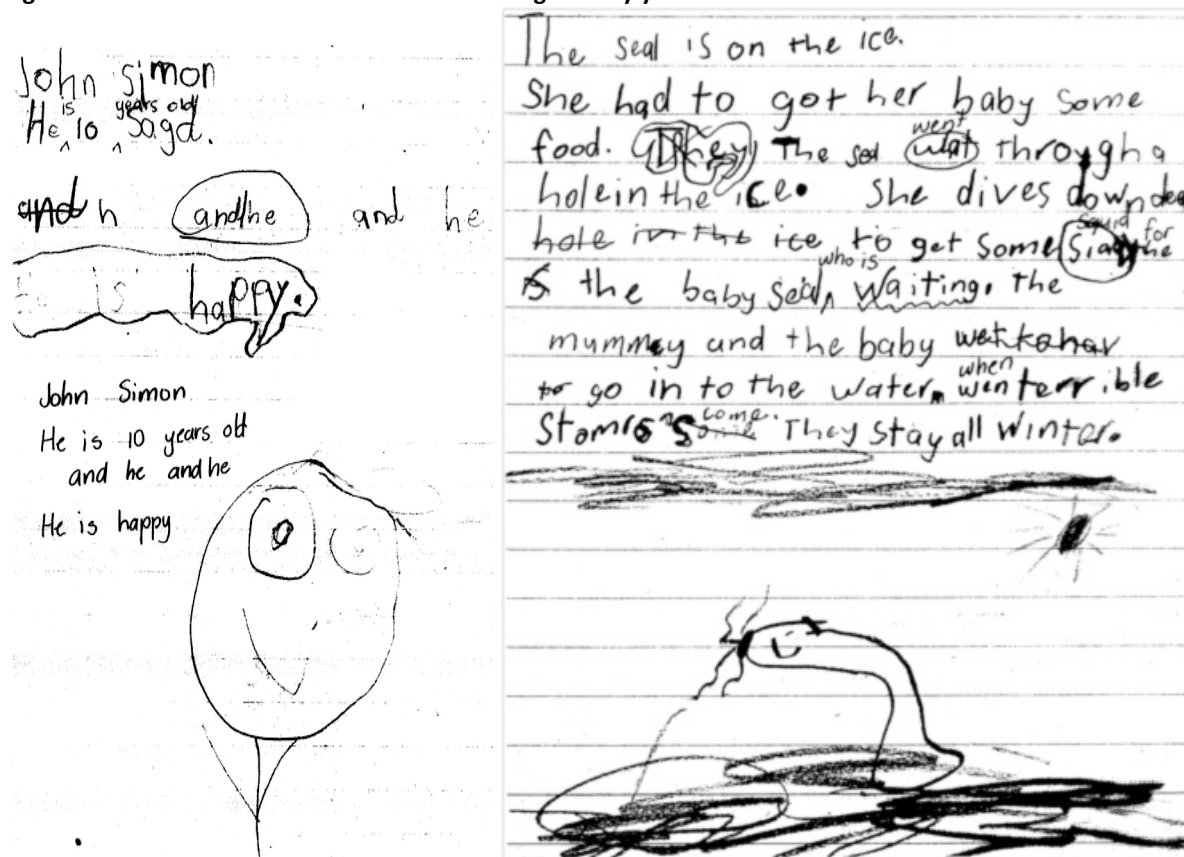 John Simon
is years old
He 10 sagd.
and h andhe and he
he is happy.
John Simon
He is 10 years old
and he andhe
He is happy
The seal is on the ice.
She had to got her baby some
went
food. They The sel through a
holein the ice. She dives down dee
squid for
hole in the ice to get some the
who is
the baby seal waiting. the
mummy and the baby
when
to go in to the water. wen terrible
come.
some They stay all winter.